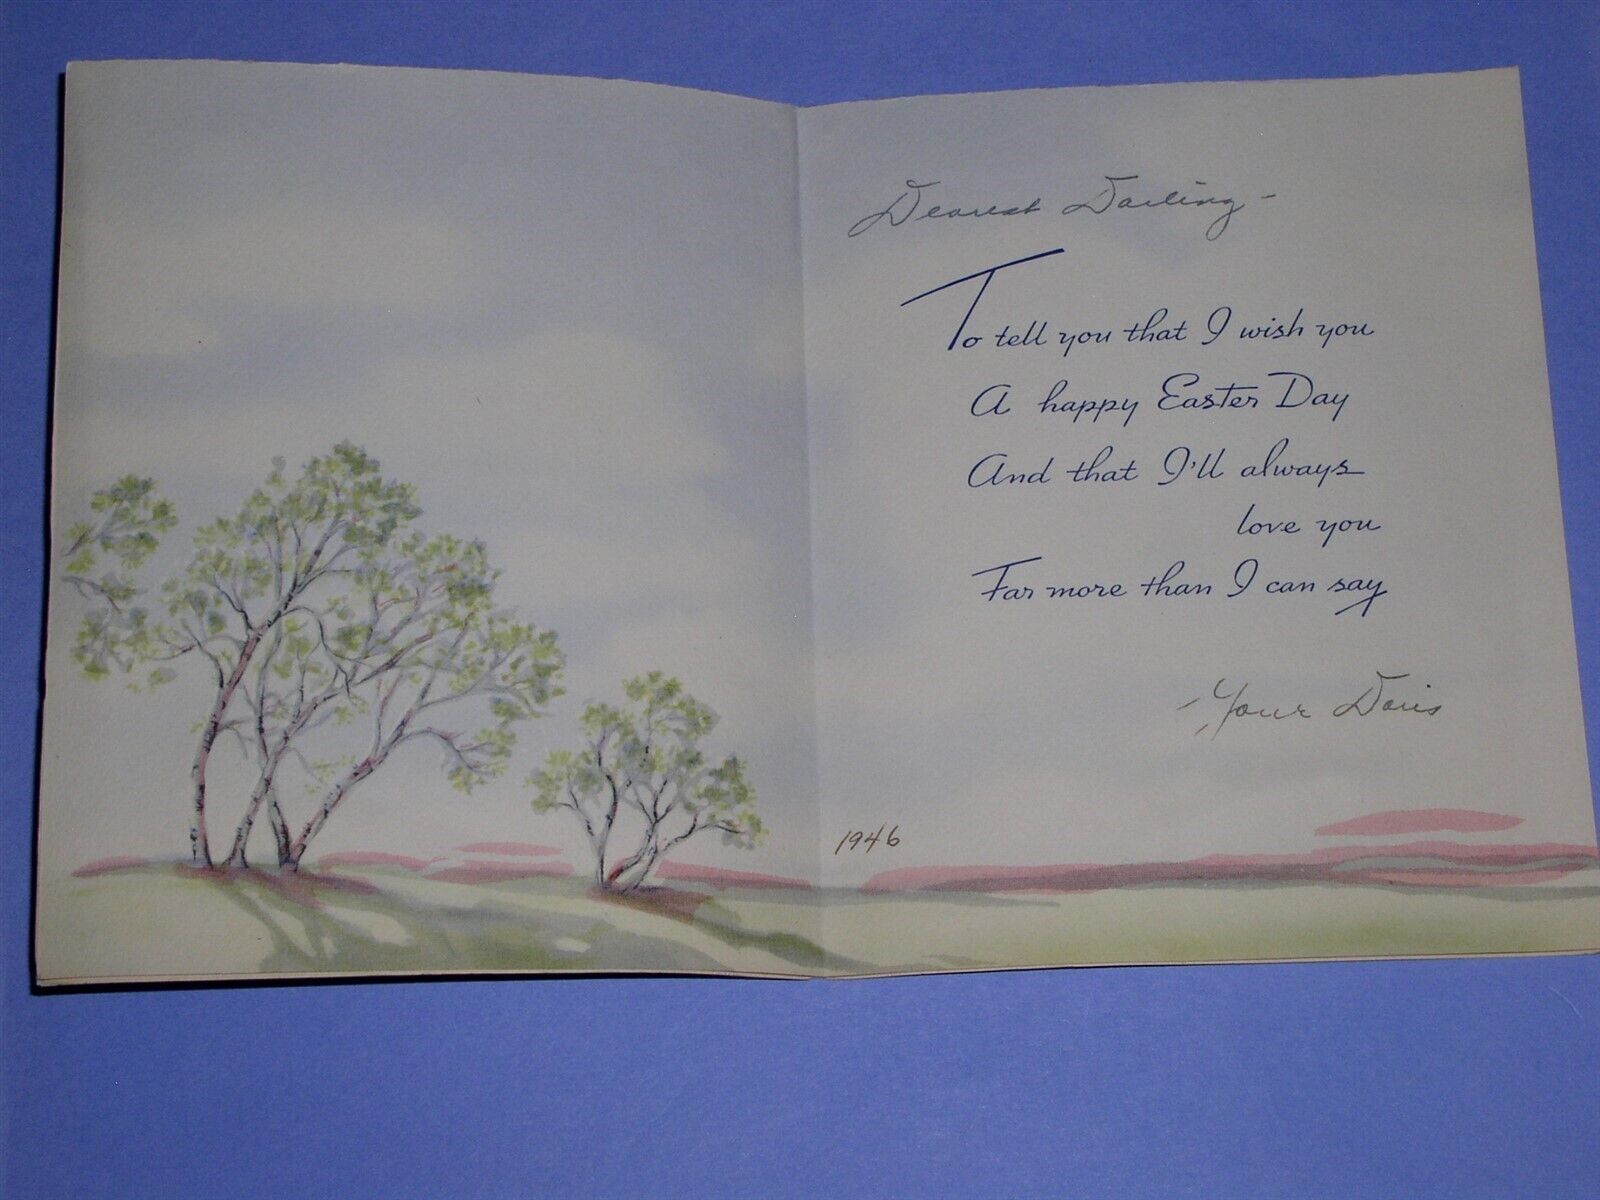 Dearest Darling -
To tell you that I wish you
A happy Easter Day
And that I'll always
love you
Far more than I can say
- Your Doris
1946